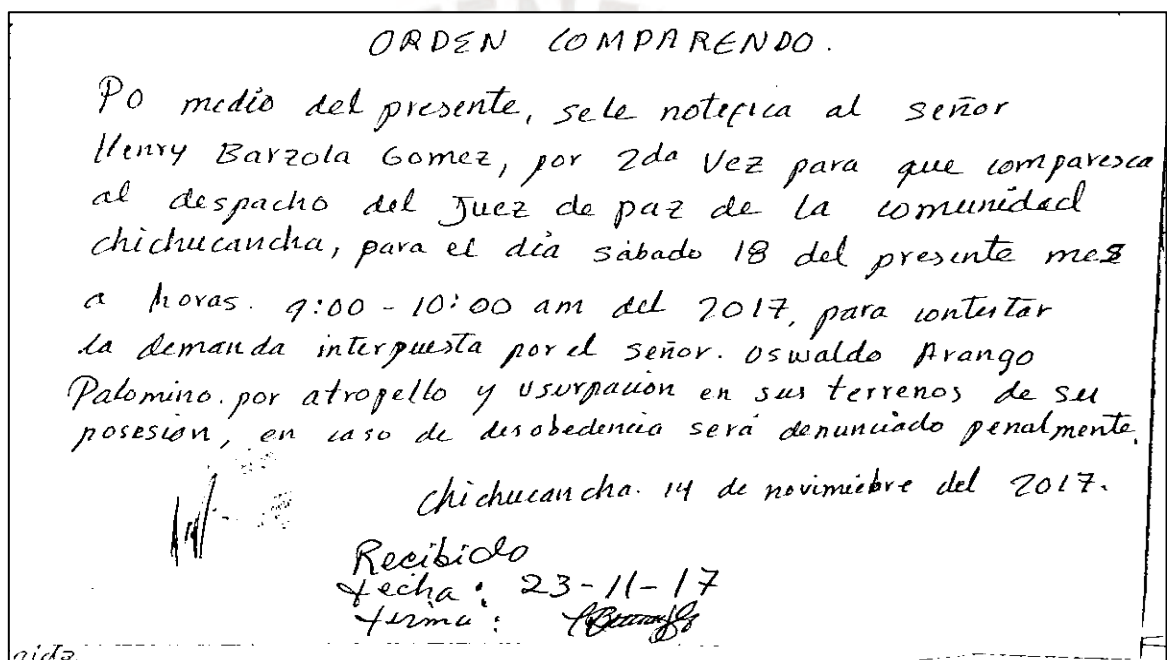 ORDEN COMPARENDO.
Po medio del presente, se le notefica al señor
Henry Barzola Gomez, por 2da Vez para que comparesca
al despacho del Juez de paz de la comunidad
chichucancha, para el día sábado 18 del presente mes
a horas. 9:00 - 10:00 am del 2017, para contestar
la demanda interpuesta por el señor. Oswaldo Arango
Palomino. por atropello y usurpación en sus terrenos de su
posesión, en caso de desobedencia será denunciado penalmente.
Chichucancha. 14 de novimiebre del 2017.
Recibido
Fecha: 23-11-17
Firma: